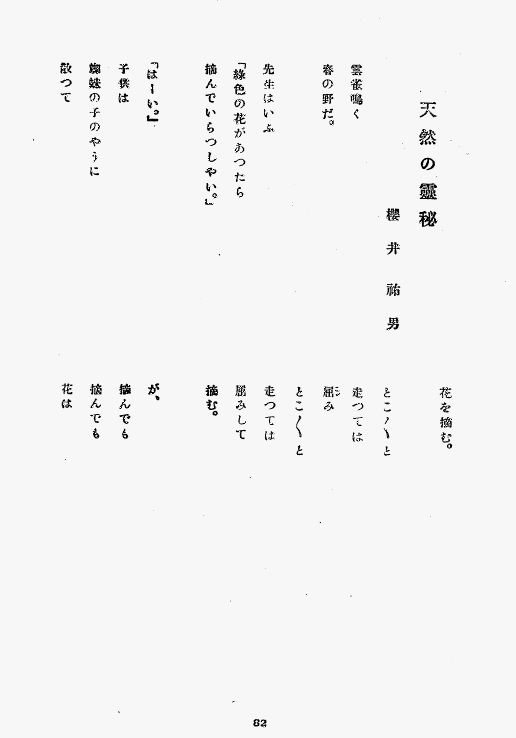 天然の靈秘
櫻井祐男
雲雀鳴く
春の野だ。
先生はいふ
「綠色の花があつたら
摘んでいらつしやい。」
「はーい。」
子供は
蜘蛛の子のやうに
散つて
花を摘む。
とこ〱と
走つては
屈み
とこ〱と
走つては
屈みして
摘む。
が、
摘んでも
摘んでも
花は
82